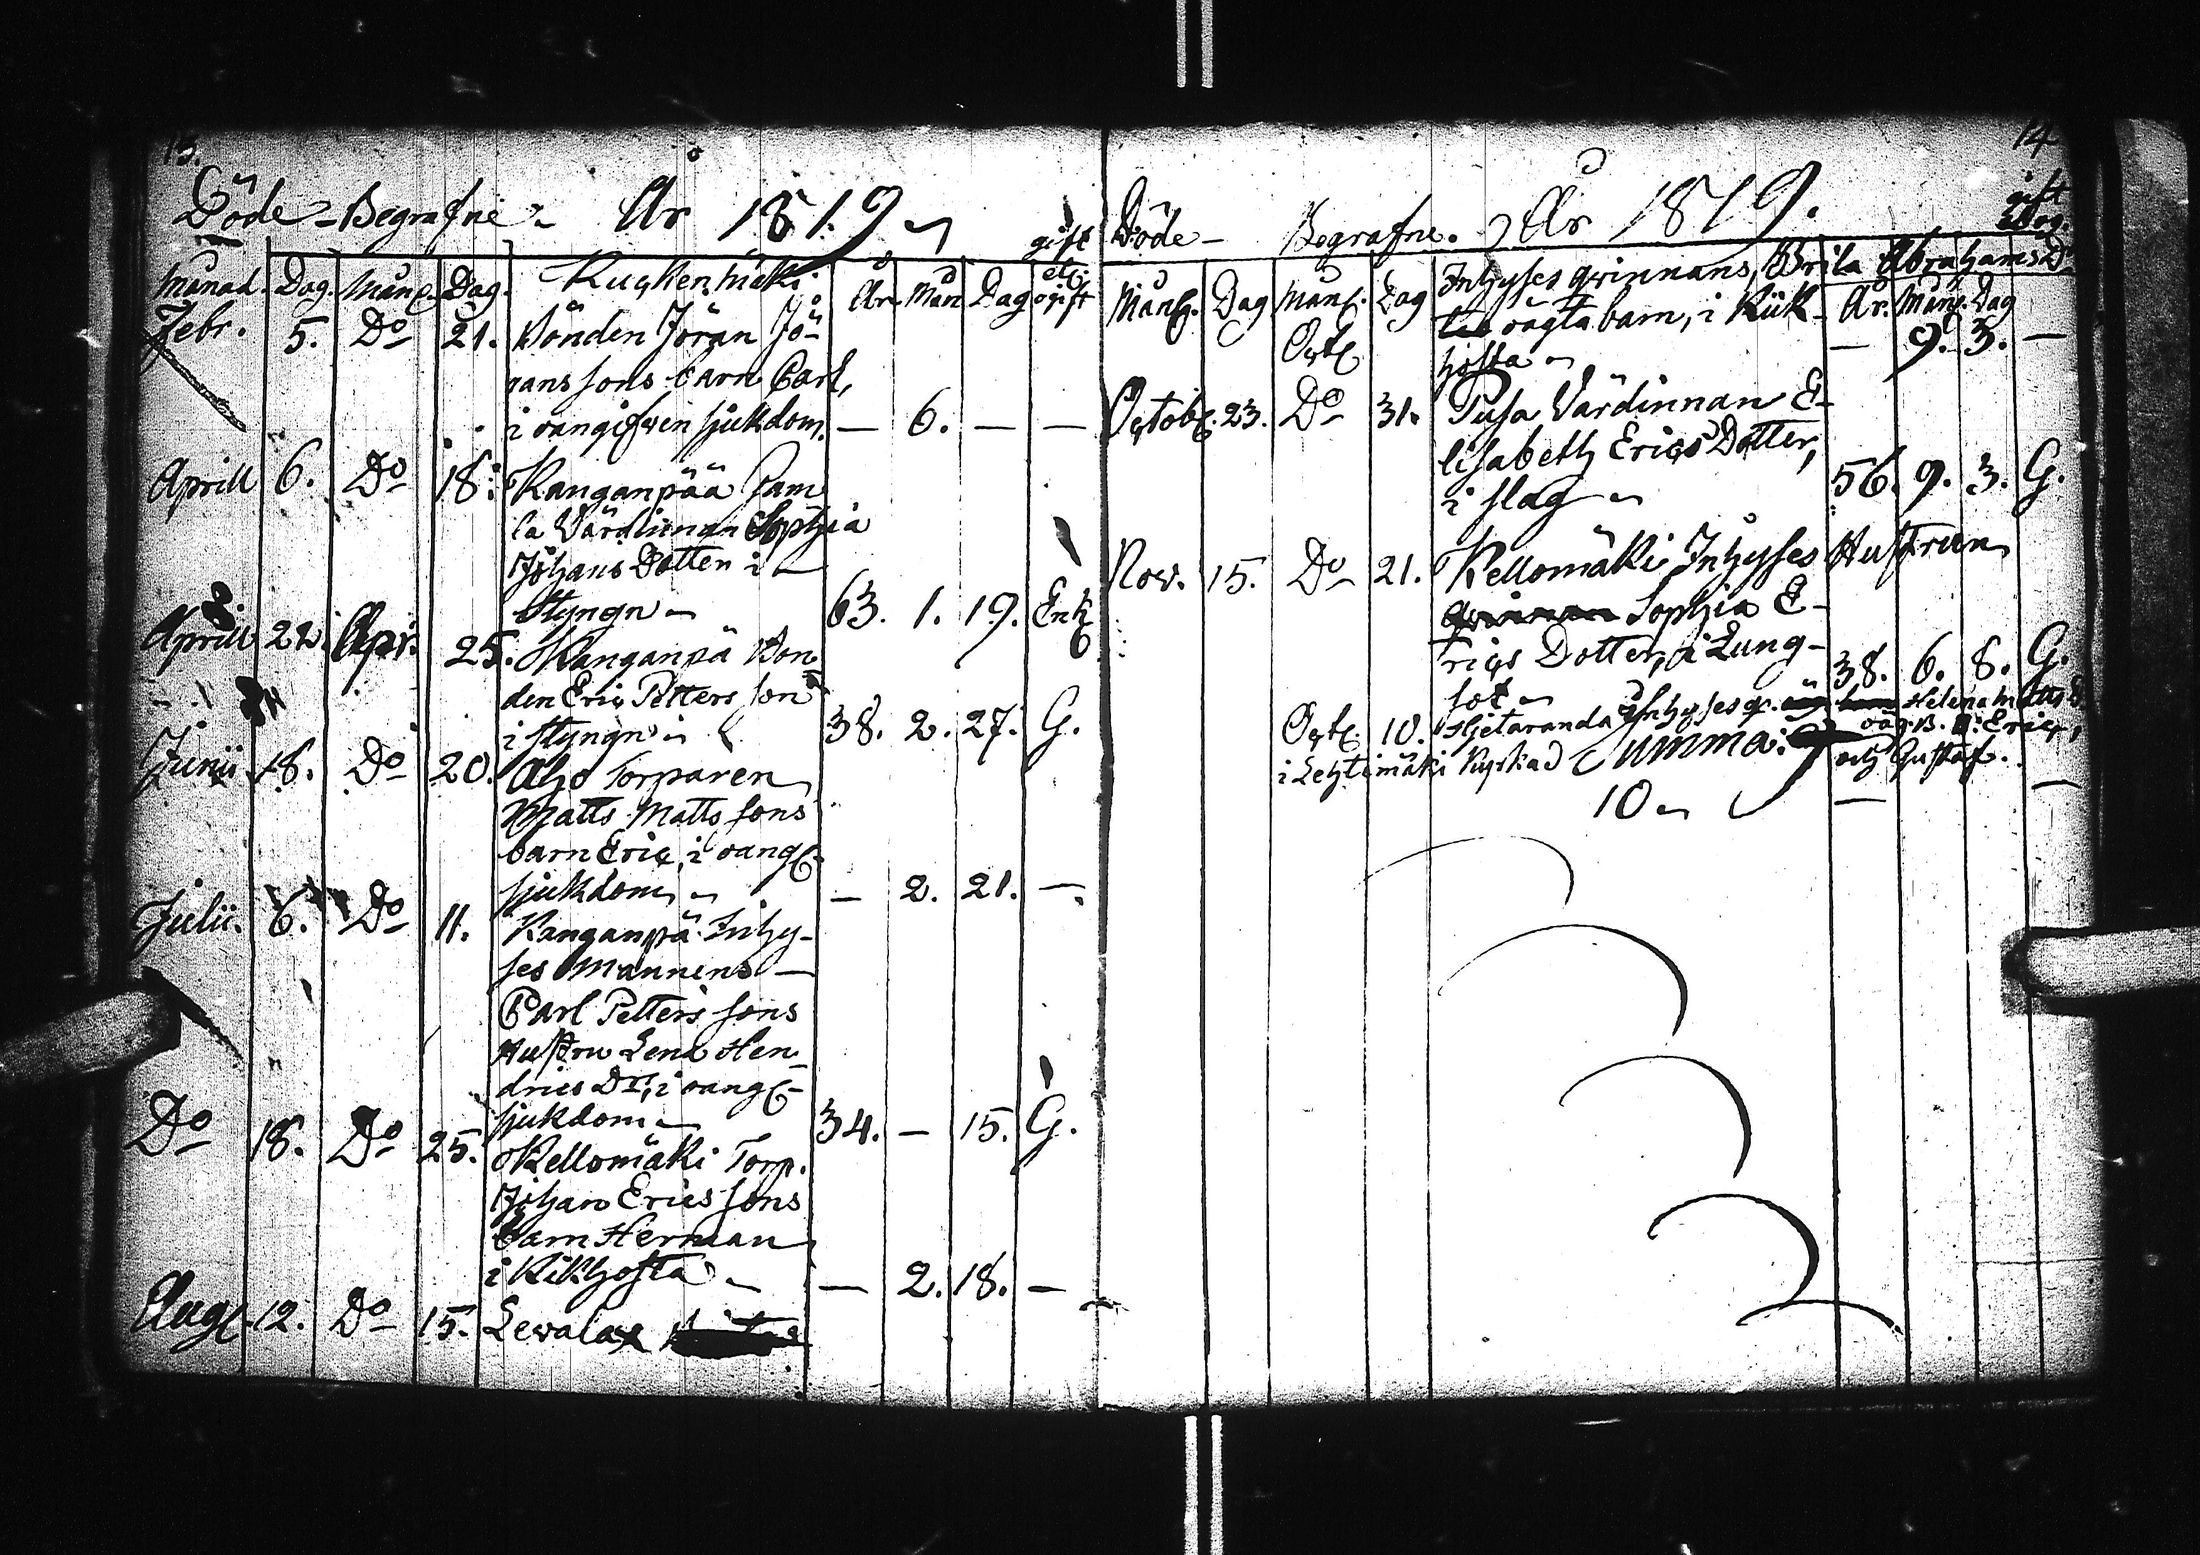 13.
Döde - Begrafne - År 1819
gift
Månad. Dag. Mån. Dag. Kuckenmäki År Mån Dag ell. ogift
Febr. 5. Do 21. Bonden Jöran Jö-
rans sons barn Carl,
i oangifwen sjukdom. — 6. — —
Aprill 6. Do 18. Kanganpää Gam
la Värdinnan Sophia
Johans Dotter i
Styngn 63. 1. 19. Enk
Aprill 22. Apr. 25. Kanganpä Bon
den Eric Petters son
i styngn 38. 2. 27. G.
Junii 18. Do 20. Aho Torparen
Matts Matts sons
barn Eric, i oang.
sjukdom — 2. 21. —.
Julii. 6. Do 11. Kanganpä Inhy-
ses Mannens —
Carl Petters sons
Hustru Lena Hen-
drics Dr, i oang.
sjukdom 34. — 15. G.
Do 18. Do 25. Kellomäki Torp.
Johan Erics sons
barn Herman
i Kikhosta — 2. 18. —
Aug. 12. Do 15. Lewala
14
Döde - Begrafne. År 1819.
gift
Månd. Dag Månd. Dag Inhyses qwinnans, Brita Abrahams D.
oägta barn, i Kik- År. Mån. Dag
Oct. hosta — 9. 3. —
Octob. 23. Do 31. Pusa Värdinnan E-
lisabeth Erics Dotter,
i slag 56. 9. 3. G.
Nov. 15. Do 21. Kellomäki Inhyses Hustrun
qwinnan Sophia E-
rics Dotter, i Lung-
sot 38. 6. 8. G.
Oct. 10. Hjetaranda Inhyses q. Helena Matts D.
oäg. B. Eric,
i Lehtimäki Kyrka Summa: 9 och Gustaf.
10 — —